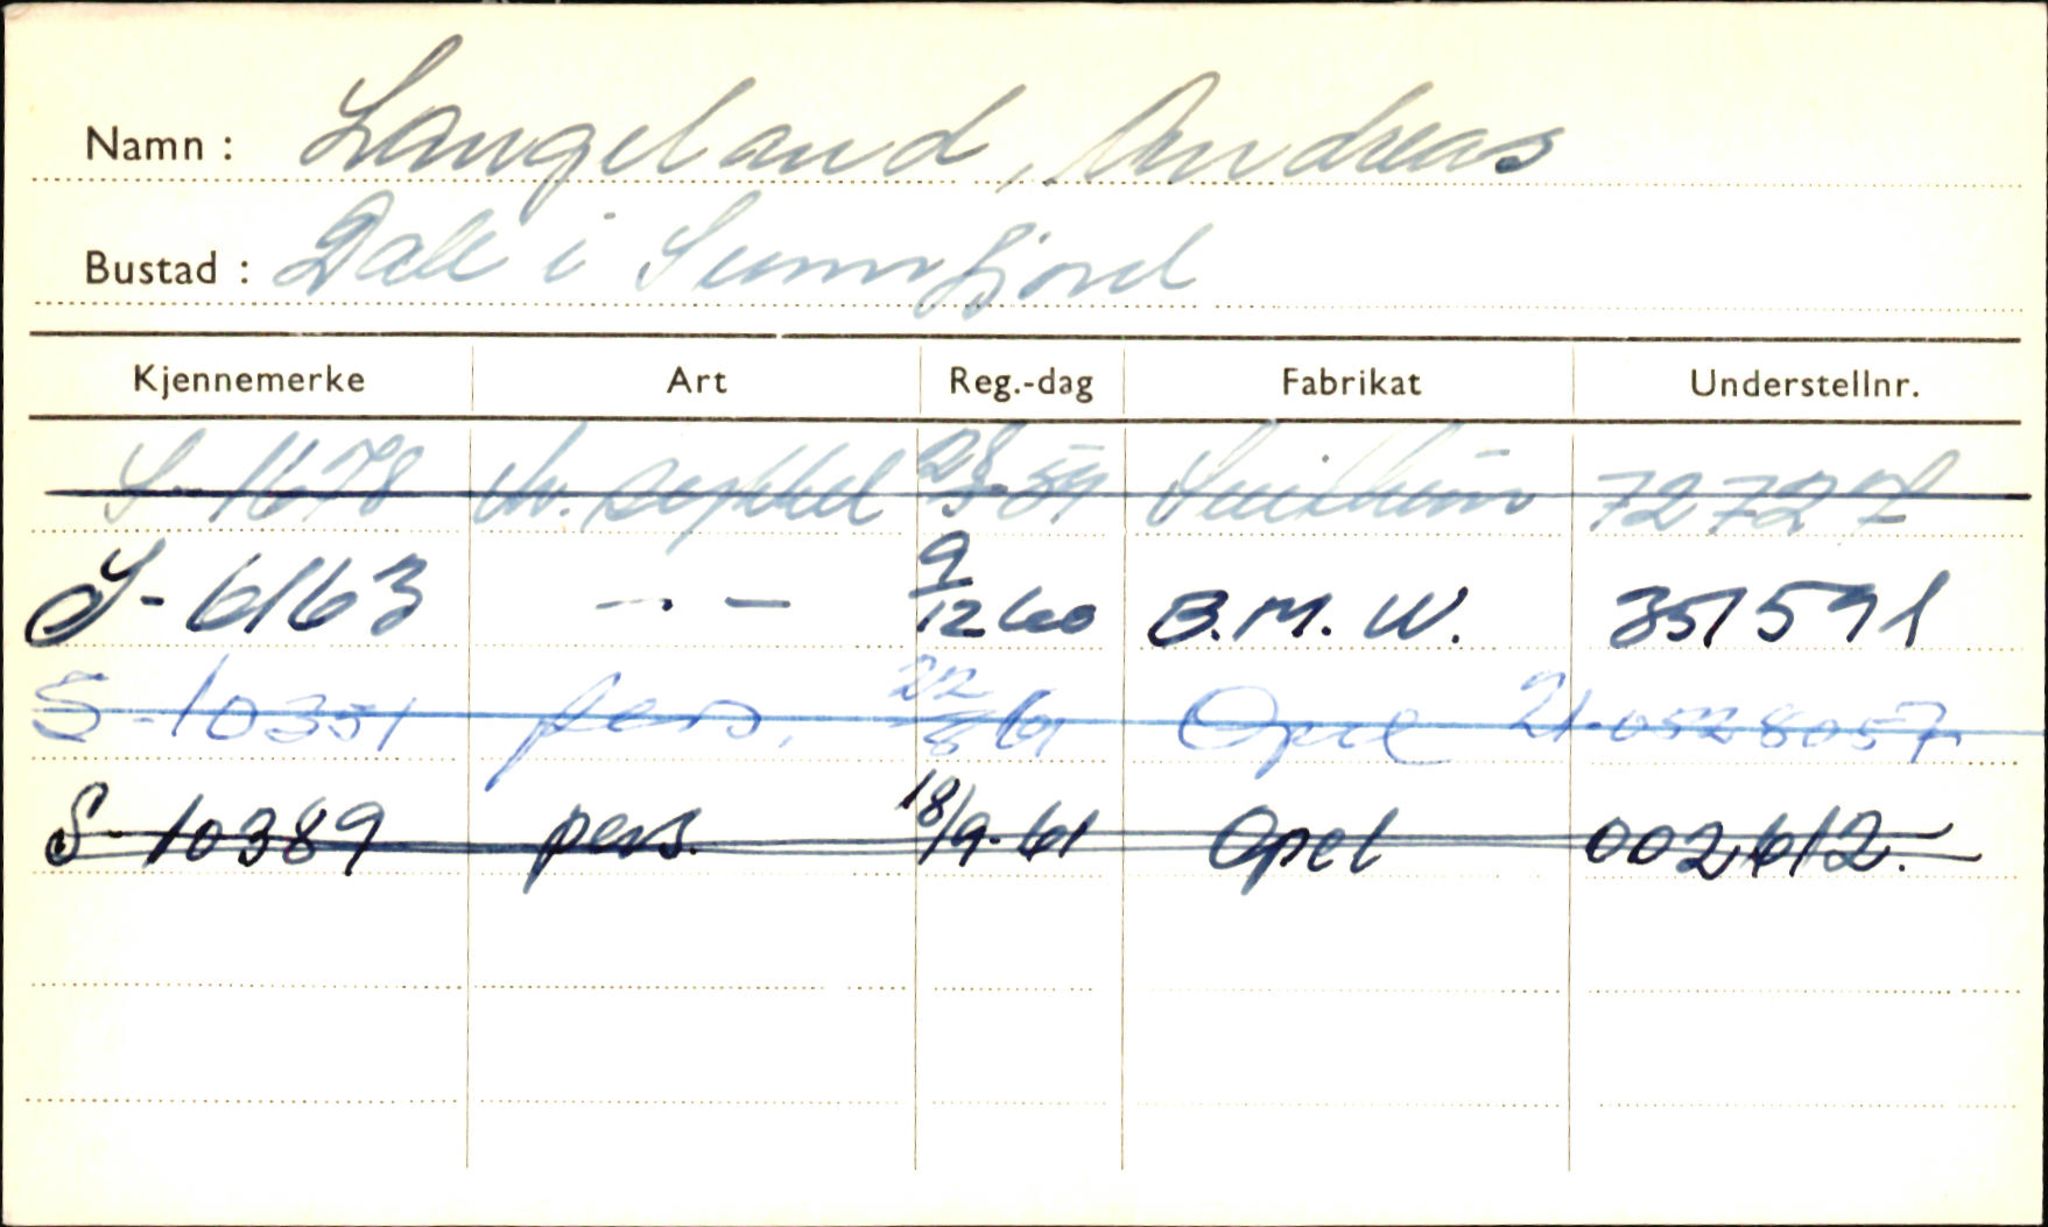 Namn : Langeland, Andreas
Bustad : Dale i Sunnfjord
Kjennemerke Art Reg.-dag Fabrikat Understellnr.
S-1678 m. sykkel 28/5-59 72727
S-6163 - . - 9/12 60 B.M.W. 351591
S-10351 pers. 22/8 61 Opel 21-0528057
S-10389 pers. 18/9-61 Opel 002612.-